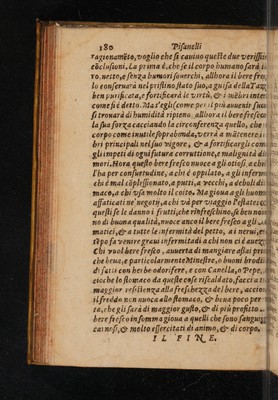 180 Pisanelli
ragionamēto, voglio che se cavino quelle due verissime
cōclusioni. La prima è, che se il corpo humano sarà
ro, netto, e senza humori soverchi, allhora il bere fresco
lo conserverà nel pristino stato suo, a guisa della
ben purificata, e fortificarà le virtù, & i mēbri
come s'è detto. Ma s'egli (come per il più avvenir suole)
si trovarà di humidità ripieno, allhora il bere fresco
la sua forza cacciando la circonferenza quello, che
corpo come inutile soprabonda, verrà a mātenere i
bri principali nel suo vigore, & a fortificargli
gli impeti di ogni futura corruttione, e malignità di
mori. Hora questo bere fresco nuoce a gli otiosi, a chi
l'ha per consuetudine, a chi è oppilato, a gli infermi
chi è mal cōplessionato, a putti, a vecchi, a debili di
maco, a chi usa molto il coito. Ma giova a gli huomini
affaticati ne' negotij, a chi và per viaggio l'estate
questi se le danno i frutti, che rinfreschino, se ben non
no di buona qualità, nuoce ancì il bere fresco a gli
matici, & a tutte le infermità del petto, a i nervi, e
tēpo fa venire gravi infermitadi a chi non ci è avezzo
Chi vuol bere fresco, avverta di mangiare assai
che beva, e particolarmente Minestre, o buoni brodi
di fatti con herbe odorifere, e con Canella, e Pepe,
cioche lo stomaco da queste cose riscaldato, facci a
maggior resistenza alla freschezza del bere, acciò
il freddo non nuoca allo stomaco, & beva poco per
ta, che gli sarà di maggior gusto, & di più profitto.
bere fresco in somma giova a quelli che sono sanguigni
carnosi, & molto essercitati di animo, & di corpo.
IL FINE.